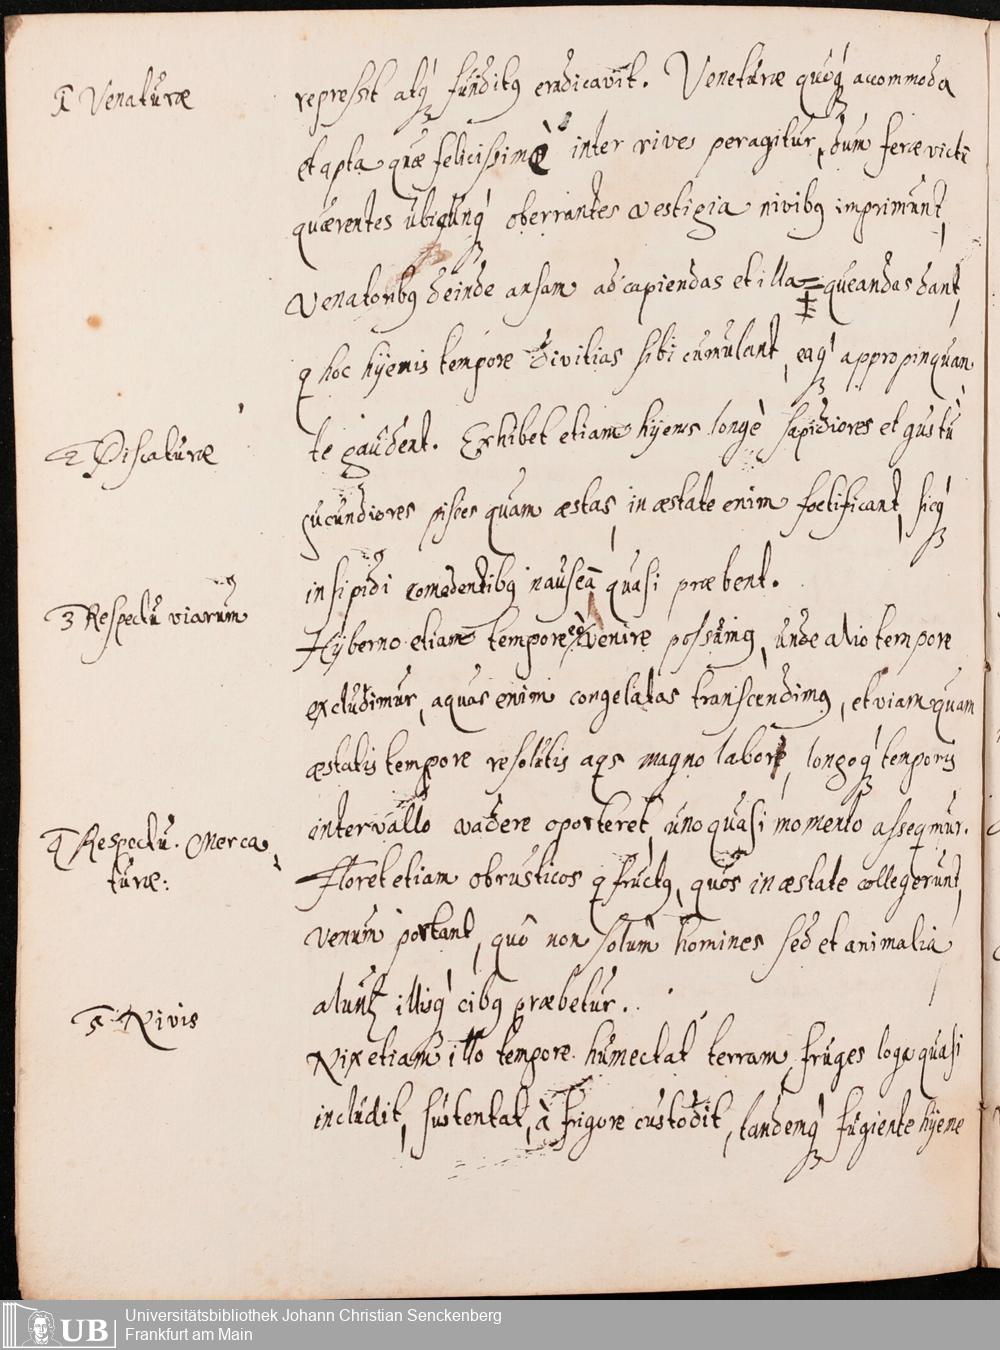 1 Venaturæ
repressit atq́ꝫ fundit9 eradicavit. Veneturæ quóq́ꝫ accommoda
et apta quæ felicissimè inter nives peragitur, dum feræ victũ
quærentes ubiqunq́ꝫ oberrantes vestigia nivib9 imprimunt,
Venatorib9 deinde ansam ad capiendas et illa=queandas dant,
q hoc hyemis tempore divitias sibi cumulant, eaq́ꝫ appropinquan
te gaudent. Exhibet etiam hyems longè sapidiores et gustu
2 Piscaturæ
iucundiores pisces quam æstas, in æstate enim foetificant, sicq́ꝫ
insipidi comedentib9 nauseã quasi præbent.
3 Respectu viarum
Hyberno etiam tempore eò venire possum9, unde alio tempore
excludimur, aquas enim congelatas transcendim9, et viam quam
æstatis tempore resolutis aqs magno labore, longoq́ꝫ temporis
intervallo vadere oporteret, uno quasi momento asseqmur.
4 Respectu Merca
turæ:
Floret etiam ob rusticos q fruct9, quos in æstate collegerunt,
Venum portant, quô non solum homines sed et animalia
aluntʒ illisq́ cib9 præbetur.
5 Nivis
Nix etiam illo tempore humectat terram, fruges loga quasi
includit, sustentat, à frigore custodit, tandemq́ꝫ fugiente hyeme
Universitätsbibliothek Johann Christian Senckenberg
UB Frankfurt am Main